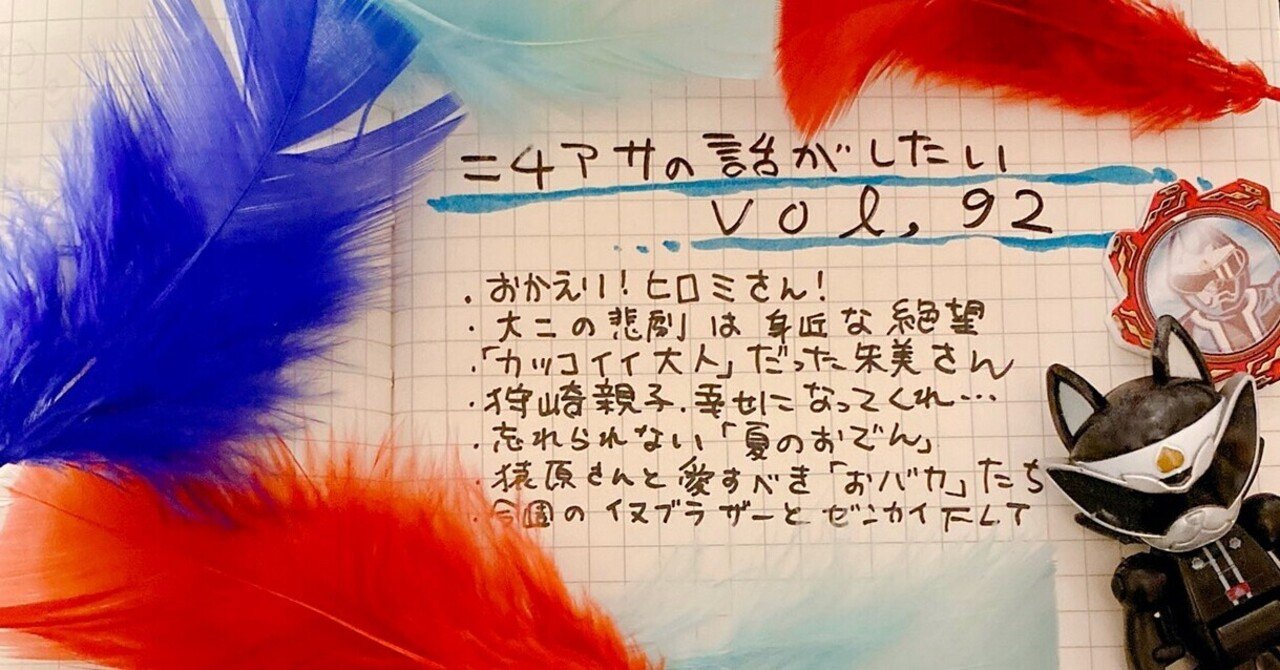 ニチアサの話がしたい
vol, 92
・おかえり！ヒロミさん！
・大二の悲劇は身近な絶望
・「カッコイイ大人」だった朱美さん
・狩崎親子、幸せになってくれ…
・忘れられない「夏のおでん」
・猿原さんと愛すべき「おバカ」たち
・今週のイヌブラザーとゼンカイ